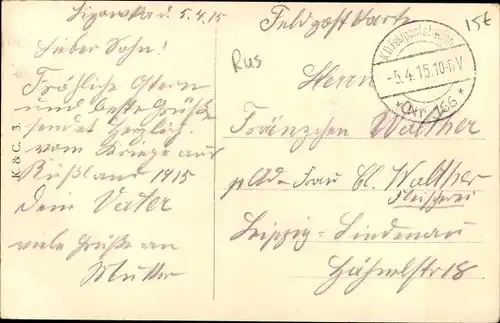 Lipowska d. 5.4.15
Lieber Sohn!
Fröhliche Ostern
und beste Grüße
sendet Herzlich
vom Kriege aus
Rußland 1915
Dein Vater
viele Grüße an
Mutter
K. & C. 3.
Feldpostkarte
15€
Rus
K.D. Feldpostexped.
-5.4.15.10-11V
* Nr. 166 *
Herrn
Fränzchen Walther
Frau Cl. Walther
Fleischerei
Leipzig-Lindenau
Hähnelstr 18